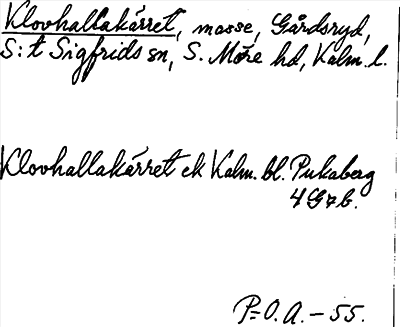 Klovhallakärret, mosse, Gårdsryd,
S:t Sigfrids sn, S. Möre hd, Kalm. l.
Klovhallakärret ek Kalm. bl. Pukaberg
4G7b.
P=O.A. - 55.